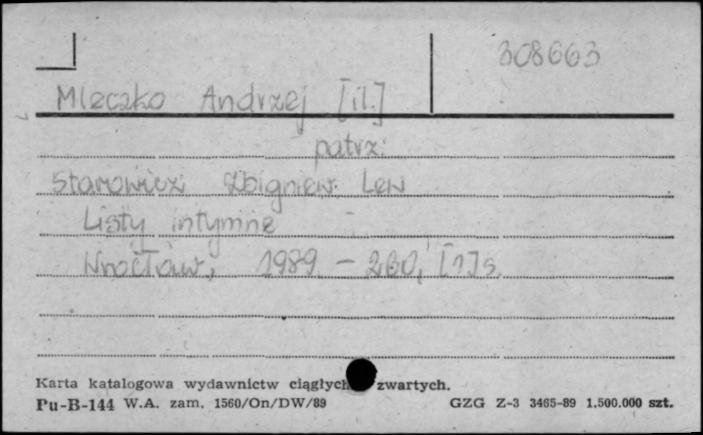 308663
Mleczko Andrzej [il.]
patrz:
Starowicz Zbigniew Lew
Listy intymne
Wrocław, 1989 - 260, [1] s.
Karta katalogowa wydawnictw ciągłych zwartych.
Pu-B-144 W.A. zam. 1560/On/DW/89 GZG Z-3 3465-89 1.500.000 szt.